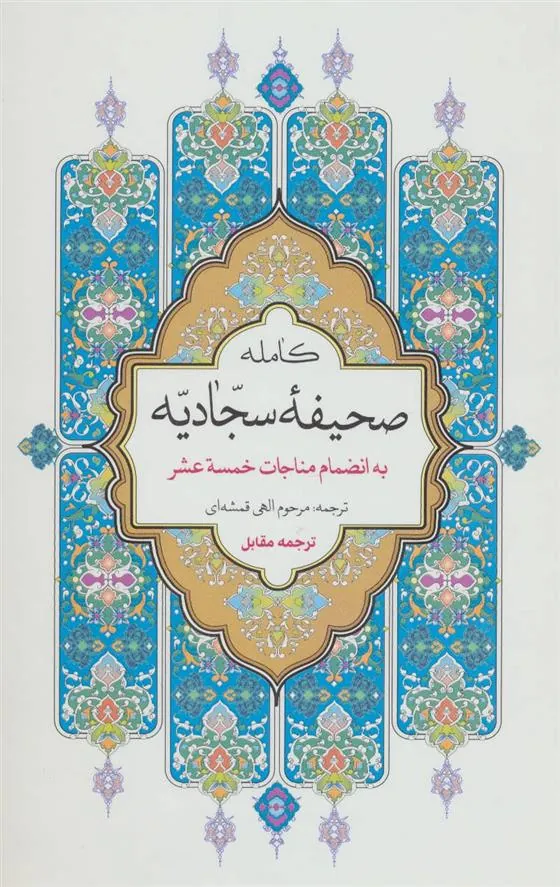 کامله
صحیفهٔ سجّادیّه
به انضمام مناجات خمسة عشر
ترجمه: مرحوم الهی قمشه‌ای
ترجمه مقابل